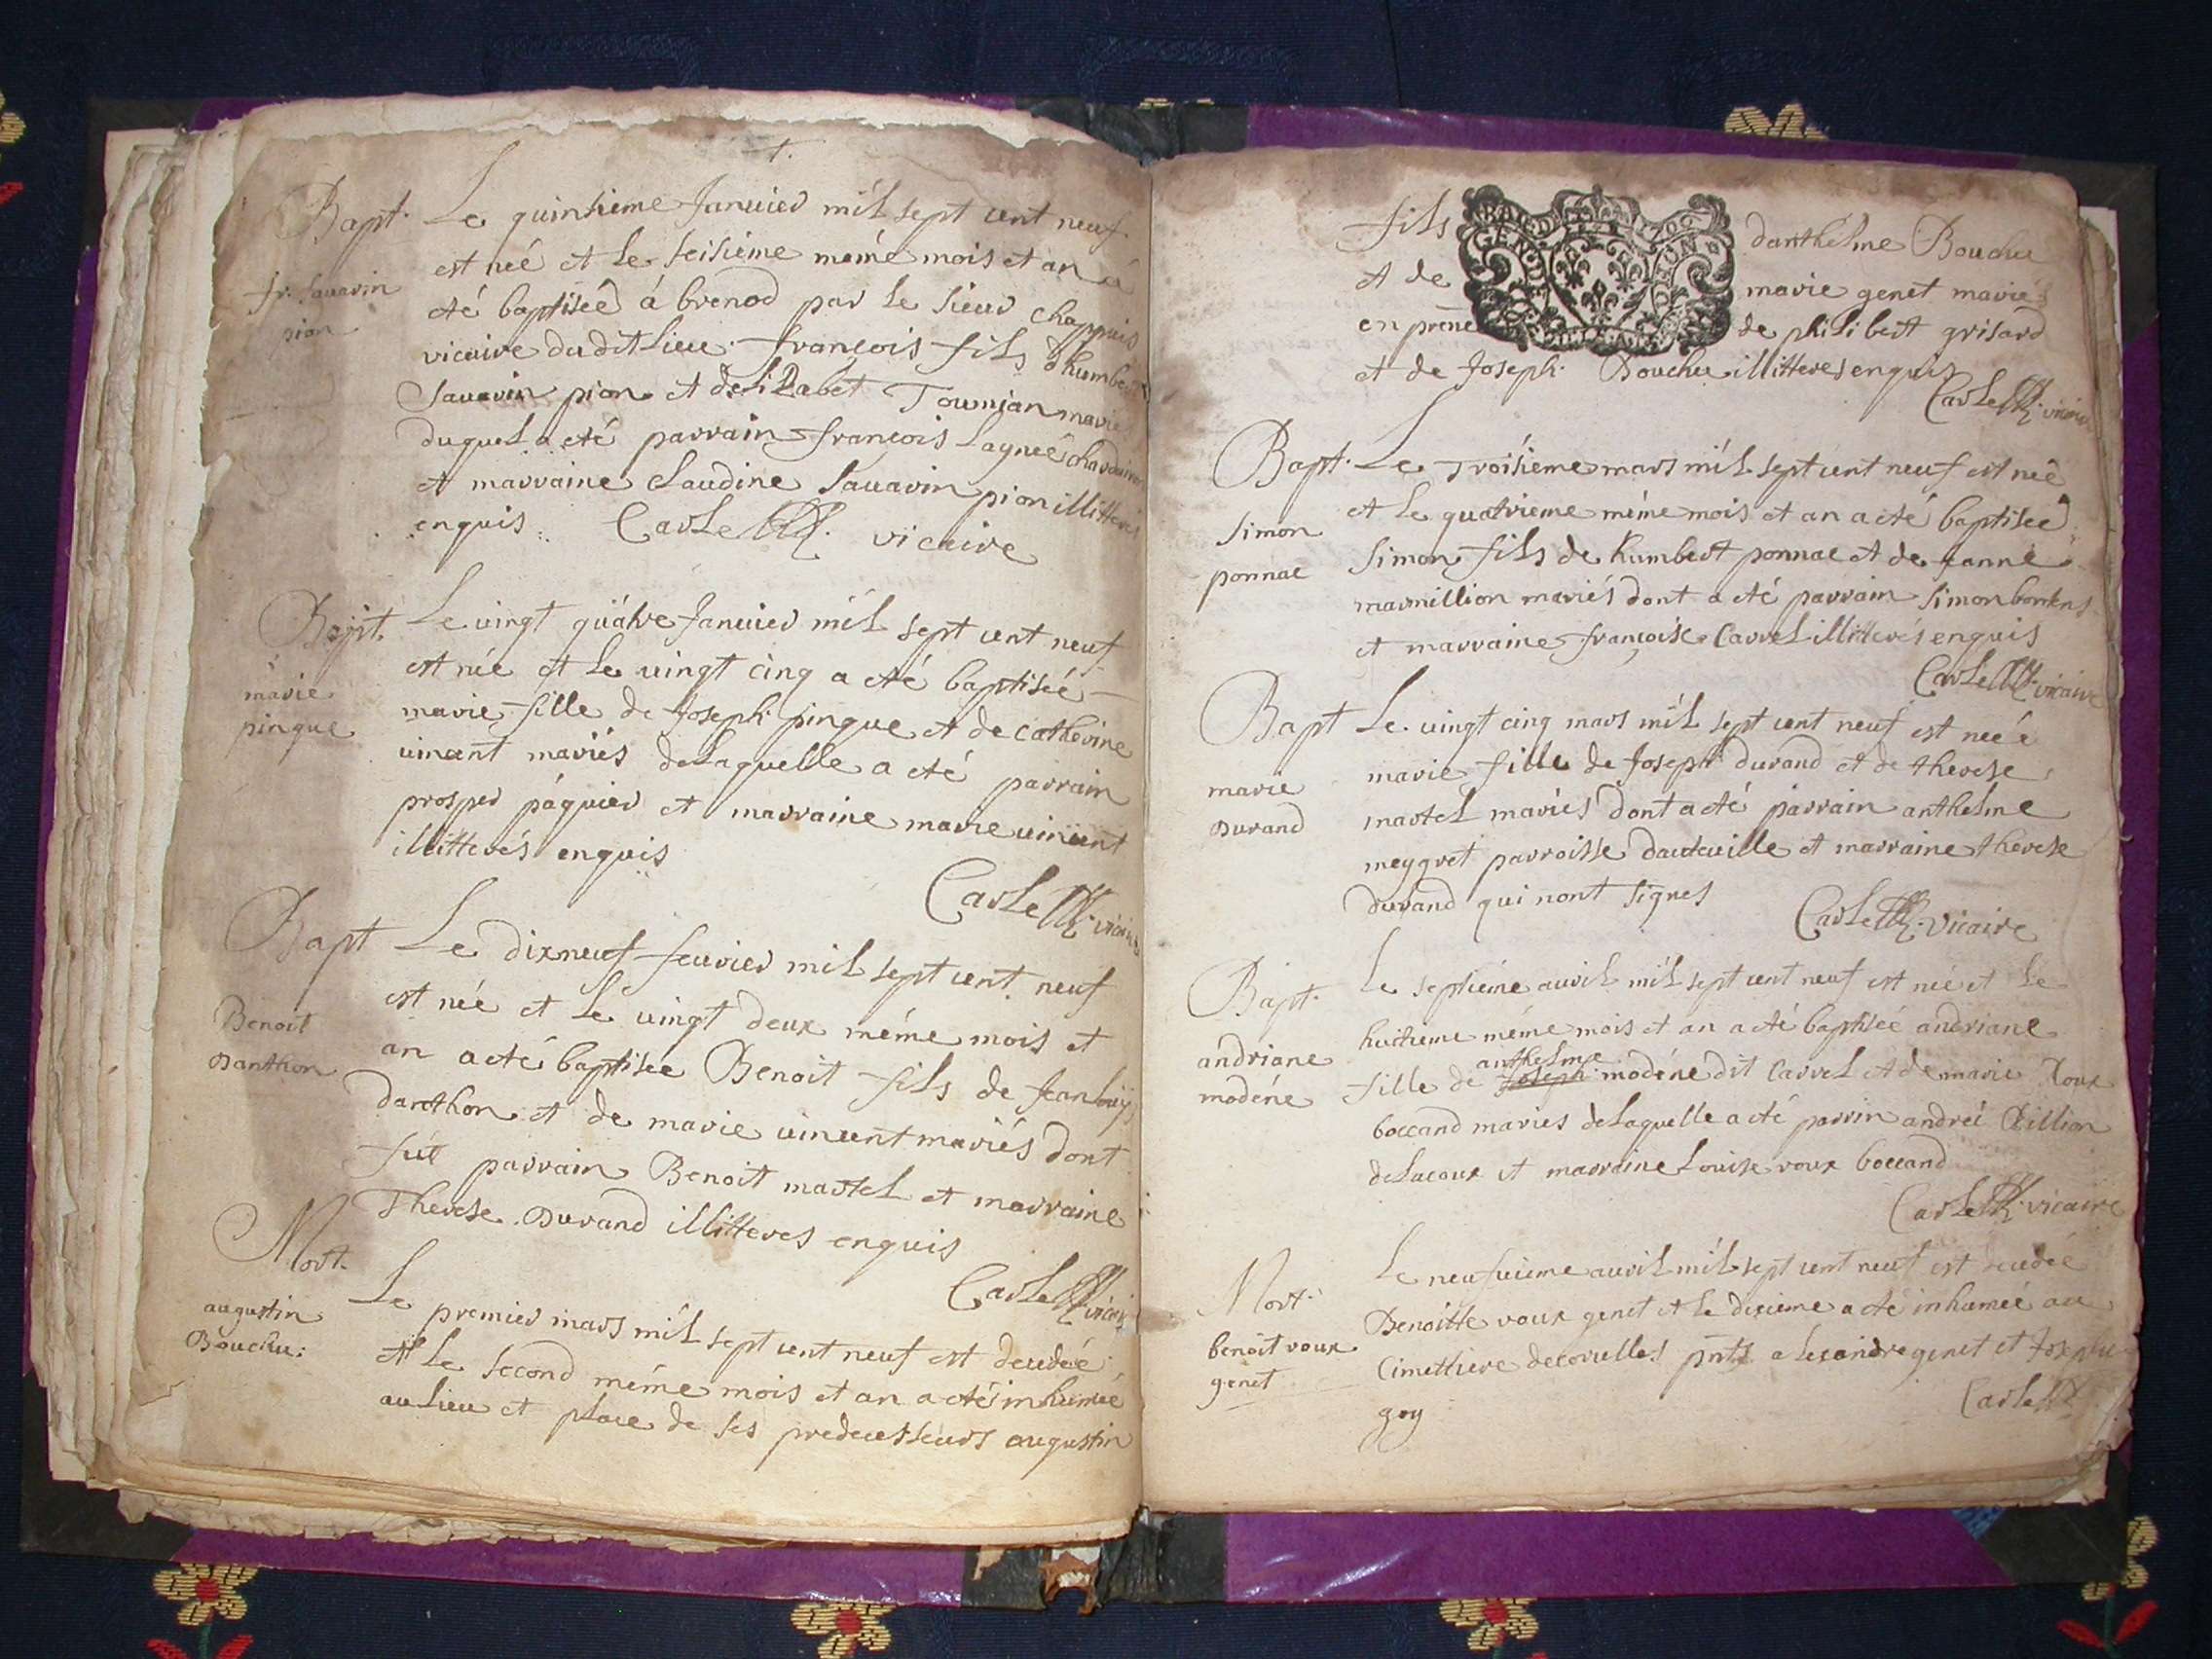 Bapt. Le quinsieme Januier mil sept cent neuf
est née et le seisième méme mois et an a
fr. sauarin
pion
eté baptiseé á brenod par le sieur chappuis
vicaire dudit lieu. françois fils d'humbert
Sauarin pion et delizabet Tournian mariés
duquel a eté parrain françois Lagneé
et marraine Claudine sauarin pion illitteres
enquis Carle vicaire
Bapt. Le vingt quátre Januier mil sept cent neuf
est née et le vingt cinq a eté baptiseé
marie
pingue
marie fille de Joseph pingue et de catherine
uincent mariés delaquelle a eté parrain
prosper páquier et marraine marie uincent
illitterés enquis
Carle vicaire
Bapt Le dixneuf feurier mil sept cent neuf
est née et le vingt deux méme mois et
Benoit
Danthon
an a eté baptiseé Benoit fils de Jean louys
danthon et de marie uincent mariés dont
fut parrain Benoit martel et marraine
Therese Durand illitteres enquis
Carle vicaire
Mort. Le premier mars mil sept cent neuf est decedeé
augustin
Bouchu:
et le second méme mois et an a eté inhumeé
au lieu et place de ses predecesseurs augustin
fils danthelme Bouchu
et de marie genet mariés
en prñce de philibert grisard
et de Joseph Bouchu illitteres enquis
Carle vicaire
Bapt. Le Troisieme mars mil sept cent neuf est neé
et le quatrieme méme mois et an a eté baptiseé
simon
ponnae
Simon fils de humbert ponnae et de Janne
marmillion mariés dont a eté parrain simon
et marraine françoise Carrel illitterés enquis
Carle vicaire
Bapt Le vingt cinq mars mil sept cent neuf est neéé
marie
Durand
marie fille de Joseph durand et de therese
martel mariés dont a eté parrain anthelme
meygret parroisse dauteuille et marraine therese
durand qui nont signes
Carle vicaire
Bapt. Le septiéme auril mil sept cent neuf est née et le
huitieme méme mois et an a eté baptiseé andriane
andriane
modéne
anthelme
fille de Joseph modéne dit Carrel et de marie Roux
boccand mariés delaquelle a eté parrin andréi
delacoux et marraine Louise roux boccand
Carle vicaire
Mort. Le neufuieme auril mil sept cent neuf est decedeé
benoit roux
genet
Benoitte roux genet et le dixieme a eté inhumeé au
Cimettiere decorcelles pñts alexandre genet et Joseph
goy Carle